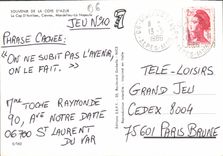 SOUVENIR DE LA COTE D'AZUR
Le Cap d'Antibes, Cannes, Mandelieu-La Napoule
06
JEU N°10
PHRASE CACHÉE:
"ON NE SUBIT PAS L'AVENIR,
ON LE FAIT. "
MME TOCHE RAYMONDE
90, AV. NOTRE DAME
06700 ST LAURENT
DU VAR
13
1986
TELE-LOISIRS
GRAND JEU
CEDEX 8004
75601 PARIS BRUNE